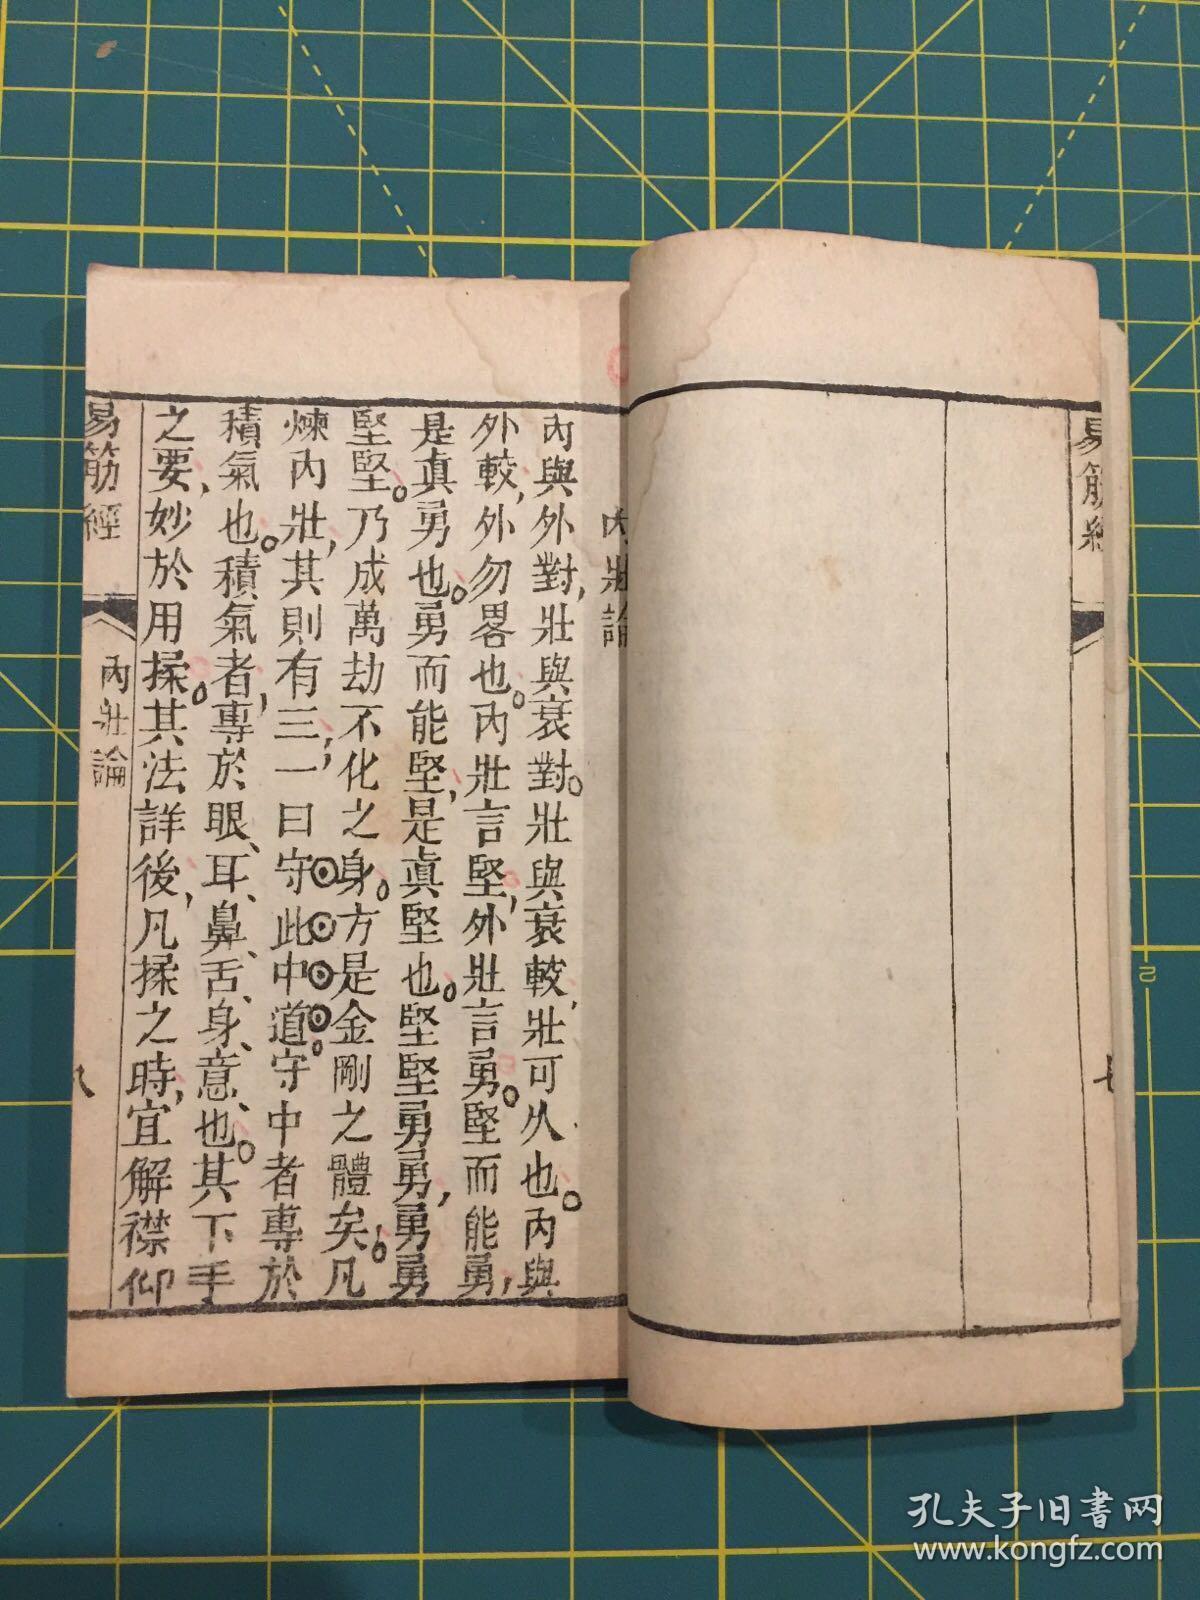 易筋經
內壯論
內與外對,壯與衰對。壯與衰較,壯可久也。內與
外較,外勿畧也。內壯言堅,外壯言勇。堅而能勇,
是眞勇也。勇而能堅,是眞堅也。堅堅勇勇,勇勇
堅堅。乃成萬劫不化之身。方是金剛之體矣。凡
煉內壯,其則有三,一曰守此中道。守中者專於
積氣也。積氣者,專於眼、耳、鼻、舌、身、意、也。其下手
之要,妙於用揉。其法詳後,凡揉之時,宜解襟仰
易筋經
內壯論
八
孔夫子旧书网
www.kongfz.com